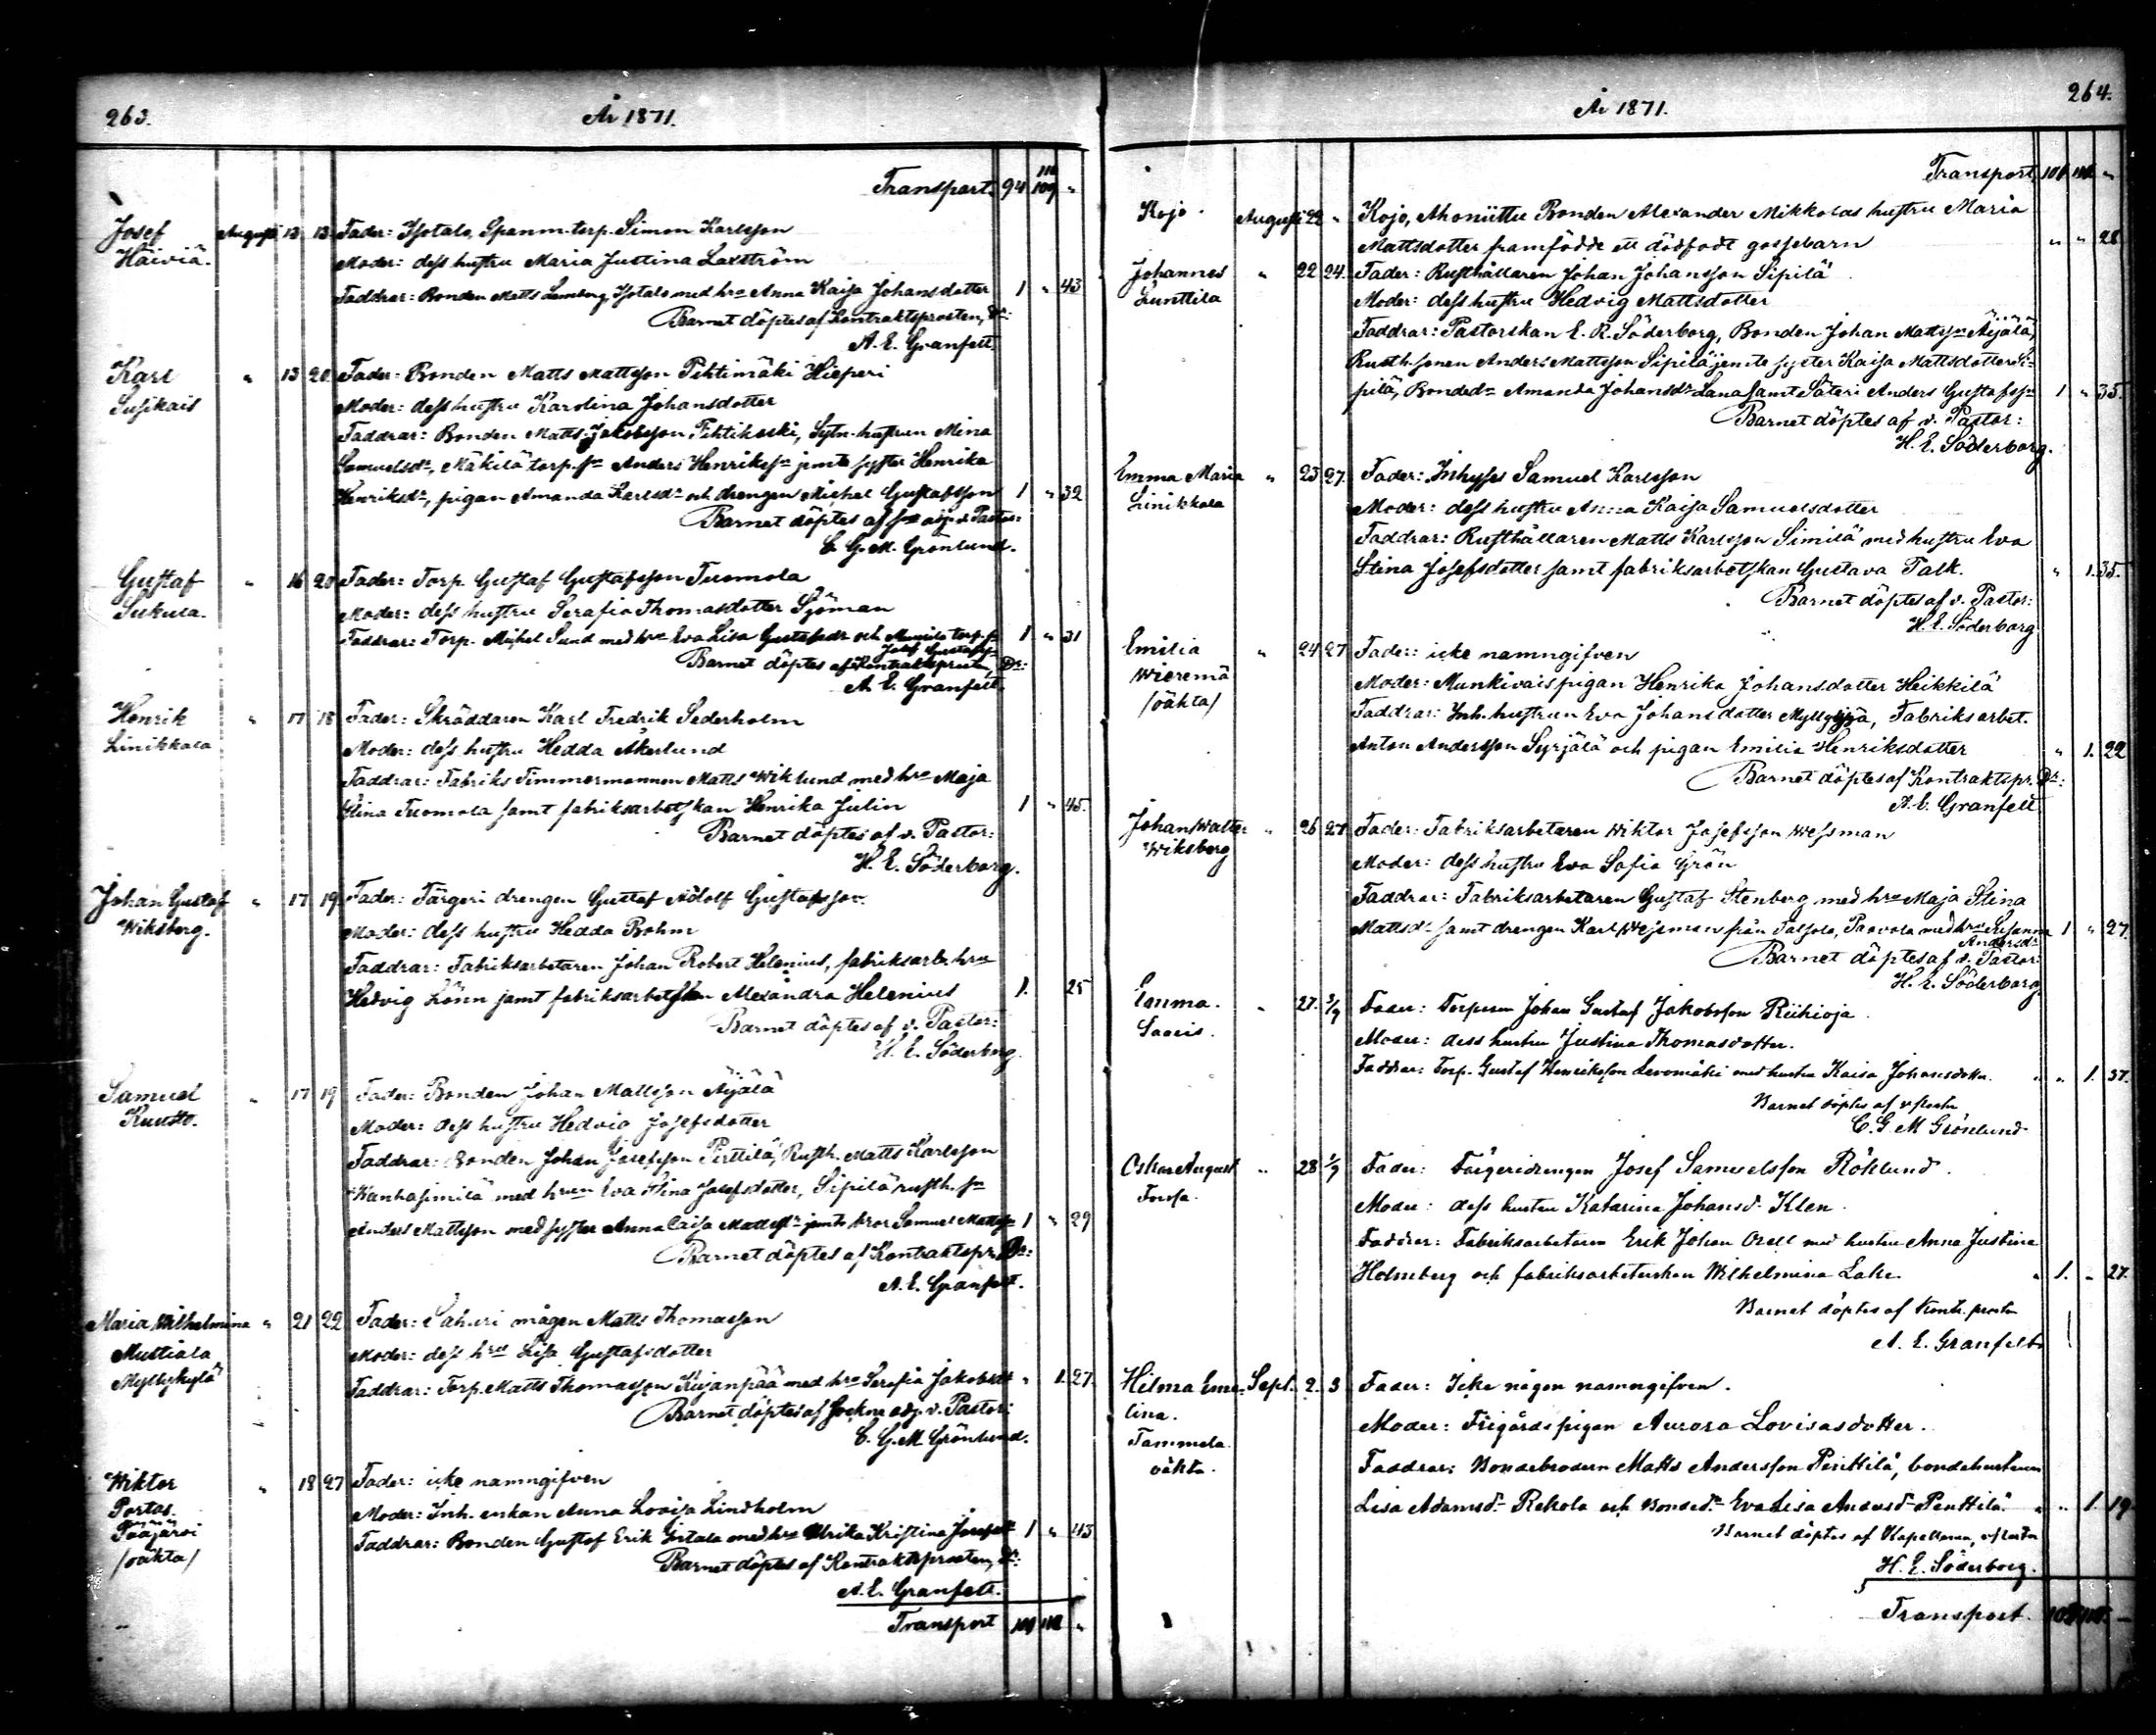 263.
År 1871.
Transport. 94 109 "
Josef Augusti 13 13 Fader: Isotalo, Spanm. torp. Simon Karlsson
Häiviä. Moder: dess hustru Maria Justina Laxström
Faddrar: Bonden Matts Lemberg Isotalo med hru Anna Kaisa Johansdotter 1 " 43
Barnet döptes af Kontraktsprosten, Dr:
A. E. Granfelt.
Karl " 13 20 Fader: Bonden Matts Mattsson Pihtimäki Hieperi
Susikais Moder: dess hustru Karolina Johansdotter
Faddrar: Bonden Matts Jakobsson, Sytn. hustrun Mina
Samuelsdr, Mäkilä torp. sn Anders Henrikssn jemte syster Henrika
Henriksdr, pigan Amanda Karlsdr och drengen Michel Gustafsson 1 " 32
Barnet döptes af adj. v. Pastor:
C. G. M. Grönlund.
Gustaf " 16 20 Fader: Torp. Gustaf Gustafsson Tuomola
Sukula. Moder: dess hustru Serafia Thomasdotter Sjöman
Faddrar: Torp. Michel Sund med hru Eva Lisa Gustafsdr och torp. sn 1 " 31
Josef Gustafssn
Barnet döptes af Kontraktsprosten, Dr:
A. E. Granfelt.
Henrik " 17 18 Fader: Skräddaren Karl Fredrik Sederholm
Linikkala Moder: dess hustru Hedda Åkerlund
Faddrar: Fabriks Timmermannen Matts Wiklund med hru Maja
Stina Tuomola samt fabriksarbetskan Henrika Julin 1 " 45.
Barnet döptes af v. Pastor:
H. E. Söderborg.
Johan Gustaf " 17 19 Fader: Färgeri drengen Gustaf Adolf Gustafsson.
Wiksberg. Moder: dess hustru Hedda Bohm
Faddrar: Fabriksarbetaren Johan Robert Helenius, fabriksarb. hru
Hedvig Lönn samt fabriksarbetskan Alexandra Helenius 1. 25
Barnet döptes af v. Pastor:
H. E. Söderborg.
Samuel " 17 19 Fader: Bonden Johan Mattsson Äijälä
Kuusto. Moder: dess hustru Hedvig Josefsdotter
Faddrar: Bonden Johan Josefsson Perttilä, Rusth. Matts Karlsson
Wanhasimilä med hrun Eva Stina Josefsdotter, Sipilä rusth. sn
Anders Mattsson med syster Anna Caisa Mattsdr jemte bror Samuel Mattssn 1 " 29
Barnet döptes af Kontraktspr. Dr:
A. E. Granfelt.
Maria Wilhelmina " 21 22 Fader: Sahuri mågen Matts Thomasson
Mustiala Moder: dess hru Lisa Gustafsdotter
Myllykylä Faddrar: Torp. Matts Thomasson Kujanpää med hru Serafia Jakobsdr " 1. 27.
Barnet döptes af Sockne adj. v. Pastor:
C. G. M. Grönlund.
Wiktor " 18 27 Fader: icke namngifven
Portas. Moder: Inh. enkan Anna Lovisa Lindholm
Pääjärvi Faddrar: Bonden Gustaf Erik med hru Ulrika Kristina Josefsdr 1 " 43
/oäkta/ Barnet döptes af Kontraktsprosten, Dr:
A. E. Granfelt.
Transport "
264.
År 1871.
Transport, "
Kojo. Augusti 22 " Kojo, Ahoniittu Bonden Alexander Mikkolas hustru Maria
Mattsdotter framfödde ett dödfödt gossebarn " " 28
Johannes " 22 24. Fader: Rusthållaren Johan Johansson Sipilä
Lunttila Moder: dess hustru Hedvig Mattsdotter
Faddrar: Pastorskan E. R. Söderborg, Bonden Johan Mattssn Äijälä,
Rusth. sonen Anders Mattsson Sipilä jemte syster Kaisa Mattsdotter Si-
pilä, Bondedr Amanda Johansdr Lana samt Säteri Anders Gustafssn 1 " 35.
Barnet döptes af v. Pastor:
H. E. Söderborg.
Emma Maria " 23 27. Fader: Inhyses Samuel Karlsson
Linikkala Moder: dess hustru Anna Kaisa Samuelsdotter
Faddrar: Rusthållaren Matts Karlsson Similä med hustru Eva
Stina Josefsdotter samt fabriksarbetskan Gustava Falk. " 1. 35.
Barnet döptes af v. Pastor:
H. E. Söderborg
Emilia " 24 27 Fader: icke namngifven
Wieremä Moder: Munkivais pigan Henrika Johansdotter Heikkilä
/oäkta/ Faddrar: Inh. hustrun Eva Johansdotter Mylly, Fabriksarbet.
Anton Andersson Syrjälä och pigan Emilia Henriksdotter " 1. 22
Barnet döptes af Kontraktspr. Dr:
A. E. Granfelt
Johan Walter " 26 27 Fader: Fabriksarbetaren Wiktor Josefsson Wessman
Wiksberg Moder: dess hustru Eva Sofia Grön
Faddrar: Fabriksarbetaren Gustaf Stenberg med hru Maja Stina
Mattsdr samt drengen Karl Wessman från Paavola med hru Susanna 1 " 27.
Andersdr
Barnet döptes af v. Pastor:
H. E. Söderborg.
Emma. " 27. 3/9 Fader: Torparen Johan Gustaf Jakobsson Riihioja.
Saaris. Moder: dess hustru Justina Thomasdotter.
Faddrar: Torp. Gustaf Henriksson Levomäki med hustru Kaisa Johansdotter. " " 1. 37.
Barnet döptes af v. Pastor
C. G. M Grönlund
Oskar August " 28 1/9 Fader: Färgeridrengen Josef Samuelsson Röklund.
Forssa. Moder: dess hustru Katarina Johansd. Klen.
Faddrar: Fabriksarbetaren Erik Johan Orell med hustru Anna Justina
Holmberg och fabriksarbeterskan Wilhelmina Lake. " 1. " 27.
Barnet döptes af Kontr. prosten
A. E. Granfelt
Hilma Eme- Sept. 2. 3 Fader: Icke någon namngifven.
lina. Moder: Frigårds pigan Aurora Lovisasdotter.
Tammela Faddrar: Bondebrodern Matts Andersson Penttilä, bondehustrun
oäkta. Lisa Adamsd. Rekola och Bonded. Eva Lisa Andersd. Penttilä. " " 1. 19.
Barnet döptes af Kapellanen, v. Pastor
H. E. Söderborg.
Transport.